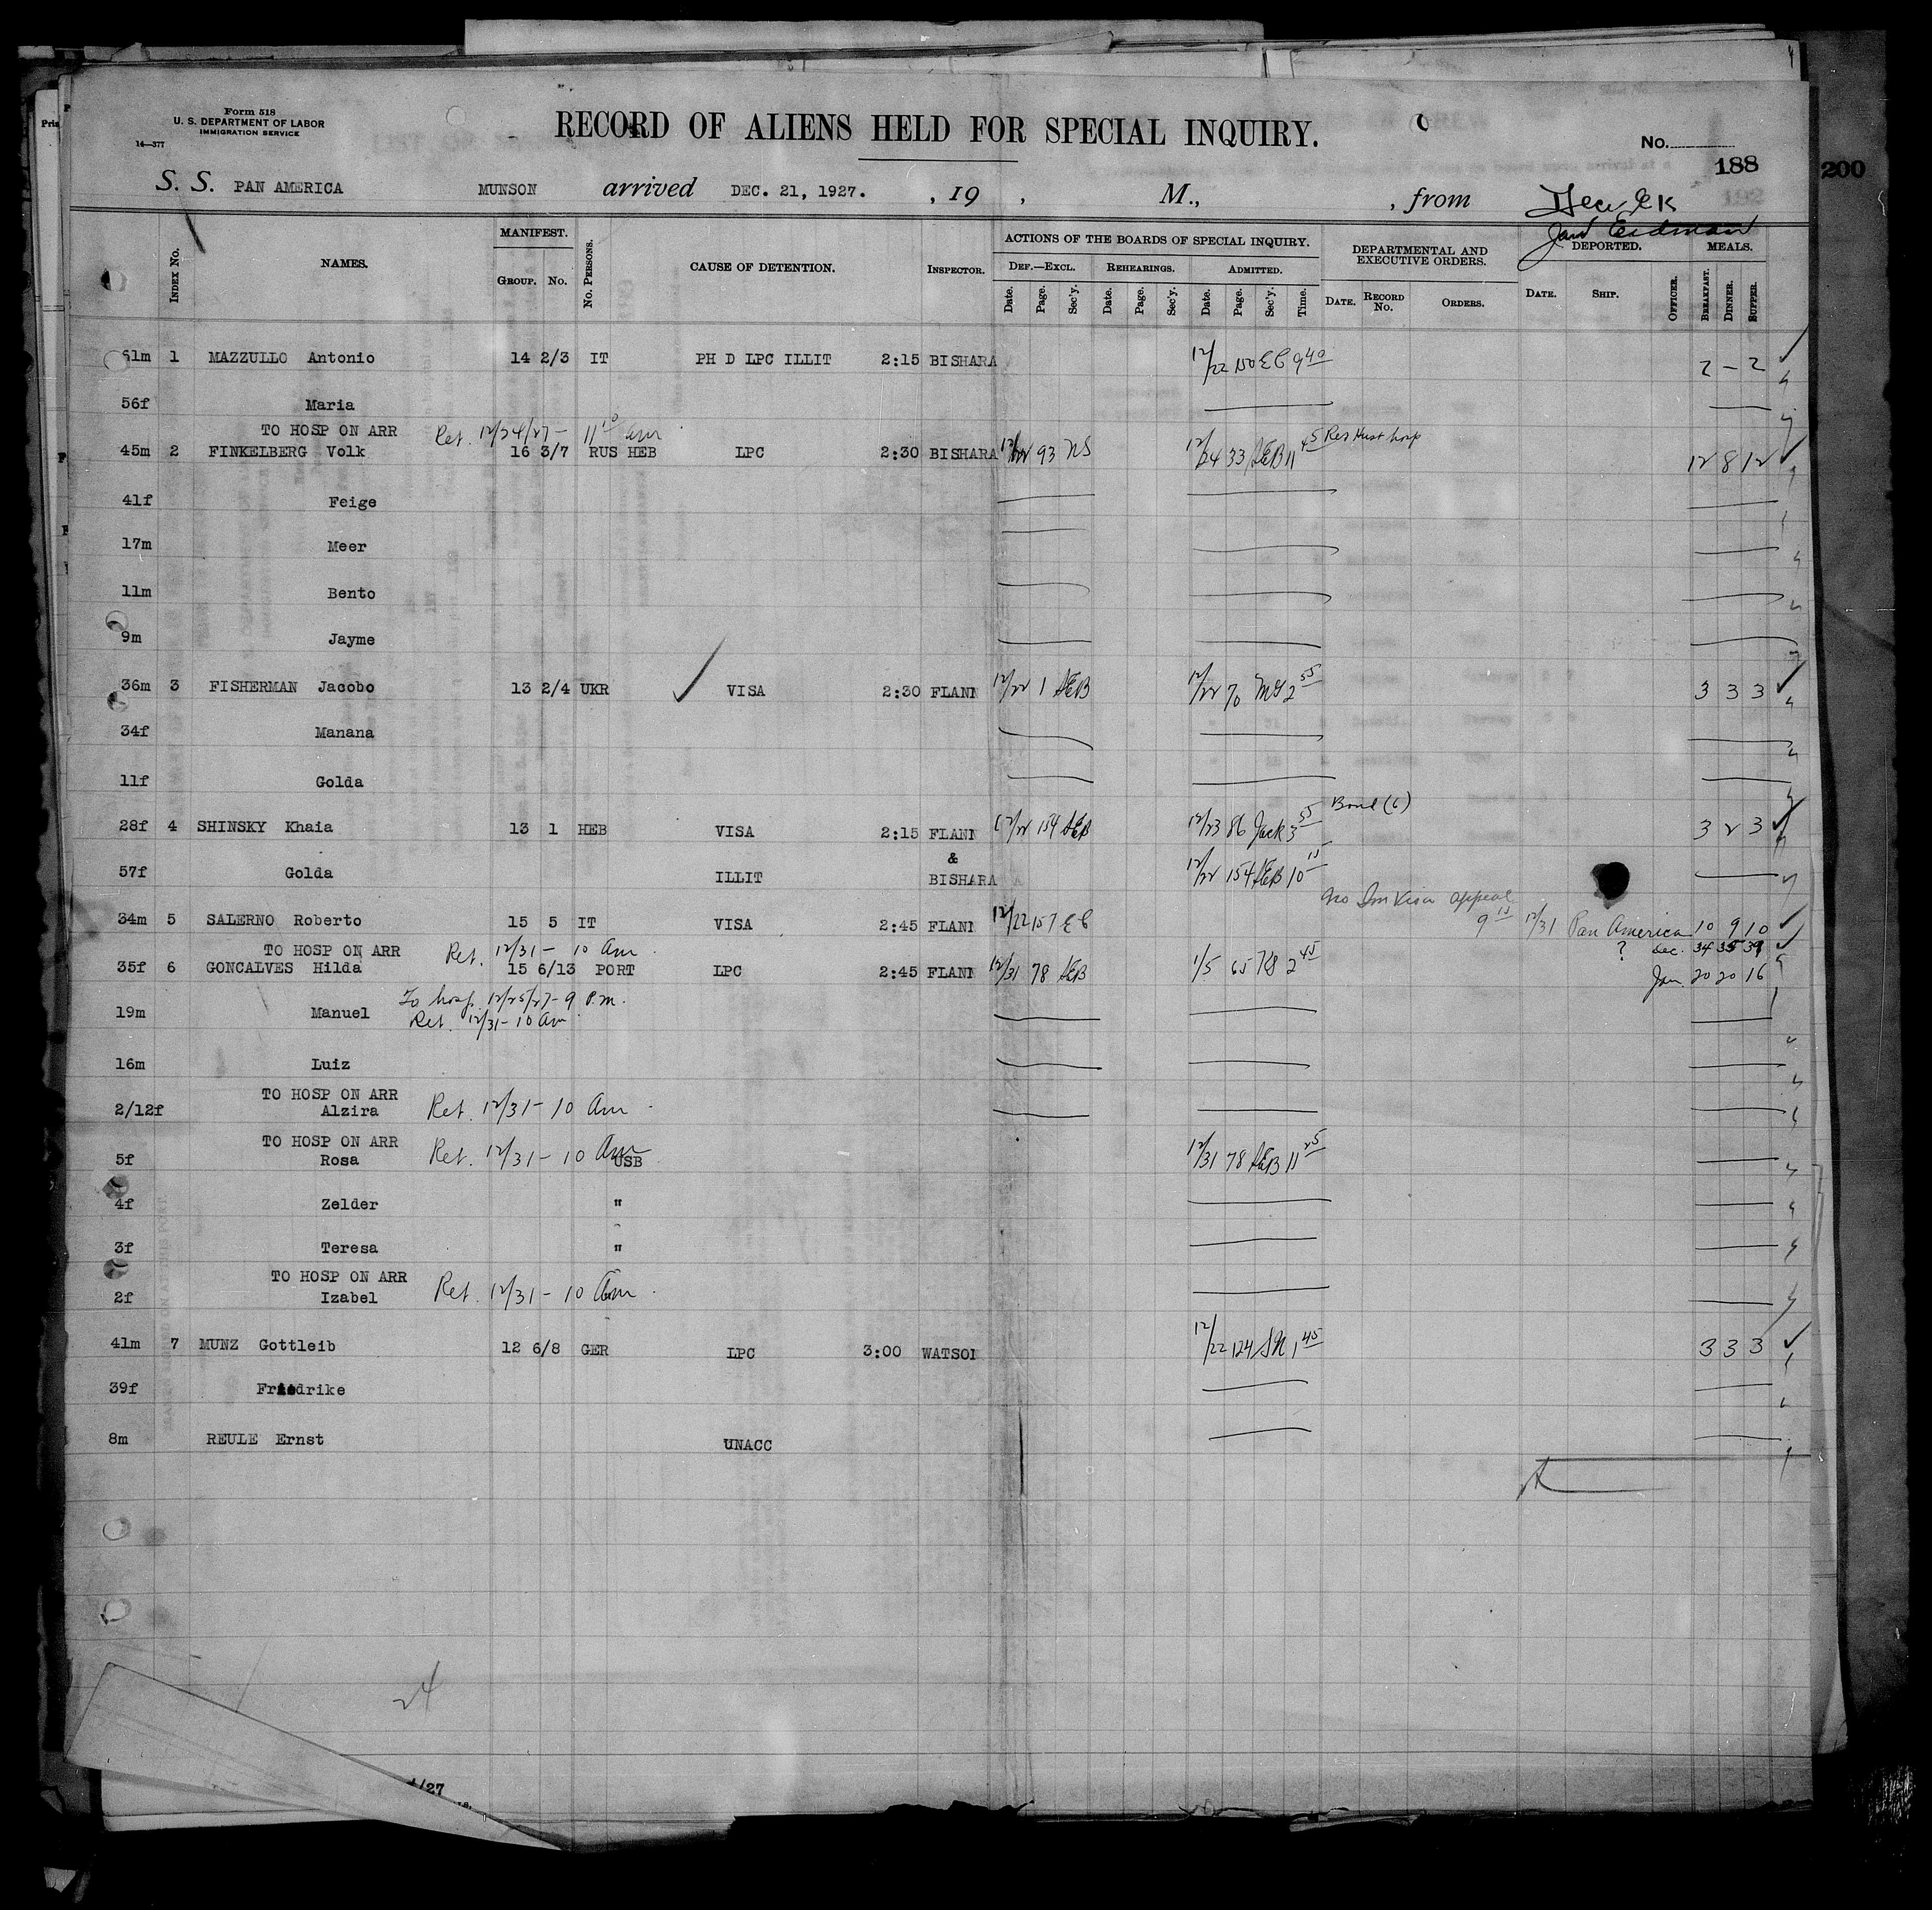 Form 518
U. S. DEPARTMENT OF LABOR
IMMIGRATION SERVICE
14—377
RECORD OF ALIENS HELD FOR SPECIAL INQUIRY.
No.
188
200
S. S. PAN AMERICA MUNSON arrived DEC. 21, 1927. , 19 , M., , from
Eidman
INDEX No. NAMES. MANIFEST. GROUP. No. No. PERSONS. CAUSE OF DETENTION. INSPECTOR. ACTIONS OF THE BOARDS OF SPECIAL INQUIRY. DEF.—EXCL. Date. Page. Sec'y. REHEARINGS. Date. Page. Sec'y. ADMITTED. Date. Page. Sec'y. Time. DEPARTMENTAL AND EXECUTIVE ORDERS. DATE. RECORD No. ORDERS. DEPORTED. DATE. SHIP. OFFICER. MEALS. BREAKFAST. DINNER. SUPPER.
61m 1 MAZZULLO Antonio 14 2/3 IT PH D LPC ILLIT 2:15 BISHARA 12/22 150 EC 9 40 2 — 2
56f Maria
TO HOSP ON ARR Ret. 12/24/27 - 11 10 am
45m 2 FINKELBERG Volk 16 3/7 RUS HEB LPC 2:30 BISHARA 93 NS 12/24 33 AEB 11 45 12 8 12
41f Feige
17m Meer
11m Bento
9m Jayme
36m 3 FISHERMAN Jacobo 13 2/4 UKR VISA 2:30 FLANN 12/22 1 AEB 12/22 70 2 55 3 3 3
34f Manana
11f Golda
Bond (6)
28f 4 SHINSKY Khaia 13 1 HEB VISA 2:15 FLANN 12/22 154 AEB 12/23 86 Jack 3 55 3 2 3
57f Golda ILLIT & BISHARA 12/22 154 AEB 10 15
appeal
34m 5 SALERNO Roberto 15 5 IT VISA 2:45 FLANN 12/22 157 EC 9 15 12/31 Pan America 10 9 10
TO HOSP ON ARR Ret. 12/31 - 10 am ? Dec. 34 35 39
35f 6 GONCALVES Hilda 15 6/13 PORT LPC 2:45 FLANN 12/31 78 AEB 1/5 65 2 45 Jan. 20 20 16
To hosp 12/25/27 - 9 P.m.
19m Manuel Ret. 12/31 - 10 am
16m Luiz
TO HOSP ON ARR
2/12f Alzira Ret. 12/31 - 10 am
TO HOSP ON ARR
5f Rosa Ret. 12/31 - 10 am USB 12/31 78 AEB 11 25
4f Zelder "
3f Teresa "
TO HOSP ON ARR
2f Izabel Ret. 12/31 - 10 am
41m 7 MUNZ Gottleib 12 6/8 GER LPC 3:00 WATSON 12/22 124 SN 1 45 3 3 3
39f Friedrike
8m REULE Ernst UNACC
24
/27